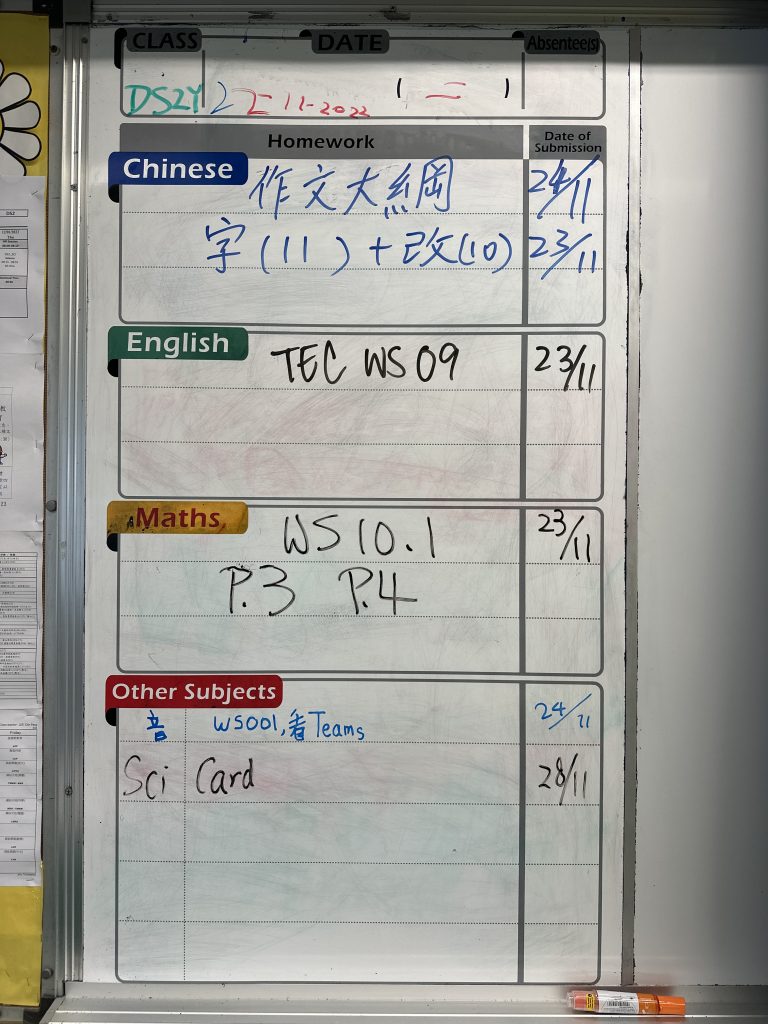 CLASS DATE Absentee(s)
DS2Y 22-11-2022 (二)
Homework Date of Submission
Chinese 作文大綱 24/11
字(11)+改(10) 23/11
English TEC WS 09 23/11
Maths WS 10.1 23/11
P.3 P.4
Other Subjects
音 WS001, 看Teams 24/11
Sci Card 28/11